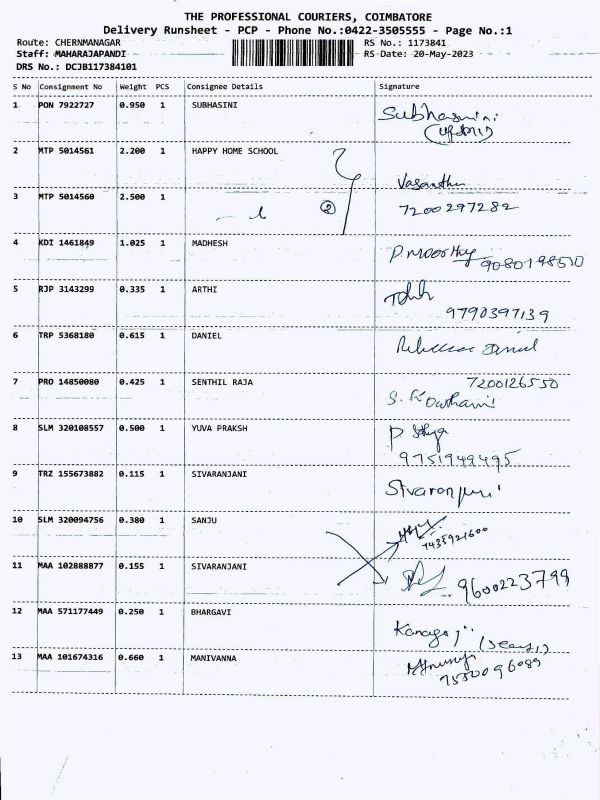 THE PROFESSIONAL COURIERS, COIMBATORE
Delivery Runsheet - PCP - Phone No.:0422-3505555 - Page No.:1
Route: CHERNMANAGAR RS No.: 1173841
Staff: MAHARAJAPANDI RS-Date: 20-May-2023
DRS No.: DCJB117384101
S No Consignment No Weight PCS Consignee Details Signature
1 PON 7922727 0.950 1 SUBHASINI Subhasini
2 MTP 5014561 2.200 1 HAPPY HOME SCHOOL
Vasantha
3 MTP 5014560 2.500 1 2 7200297282
4 KDI 1461849 1.025 1 MADHESH P. moorthy
9080198510
5 RJP 3143299 0.335 1 ARTHI
9790397139
6 TRP 5368180 0.615 1 DANIEL Rebecca Daniel
7 PRO 14850080 0.425 1 SENTHIL RAJA 7200126550
S. Gowthami
8 SLM 320108557 0.500 1 YUVA PRAKSH P Sathya
9751949495
9 TRZ 155673882 0.115 1 SIVARANJANI Sivaranjani
10 SLM 320094756 0.380 1 SANJU
7435921600
11 MAA 102888877 0.155 1 SIVARANJANI 9600223799
12 MAA 571177449 0.250 1 BHARGAVI
13 MAA 101674316 0.660 1 MANIVANNA
7550096089